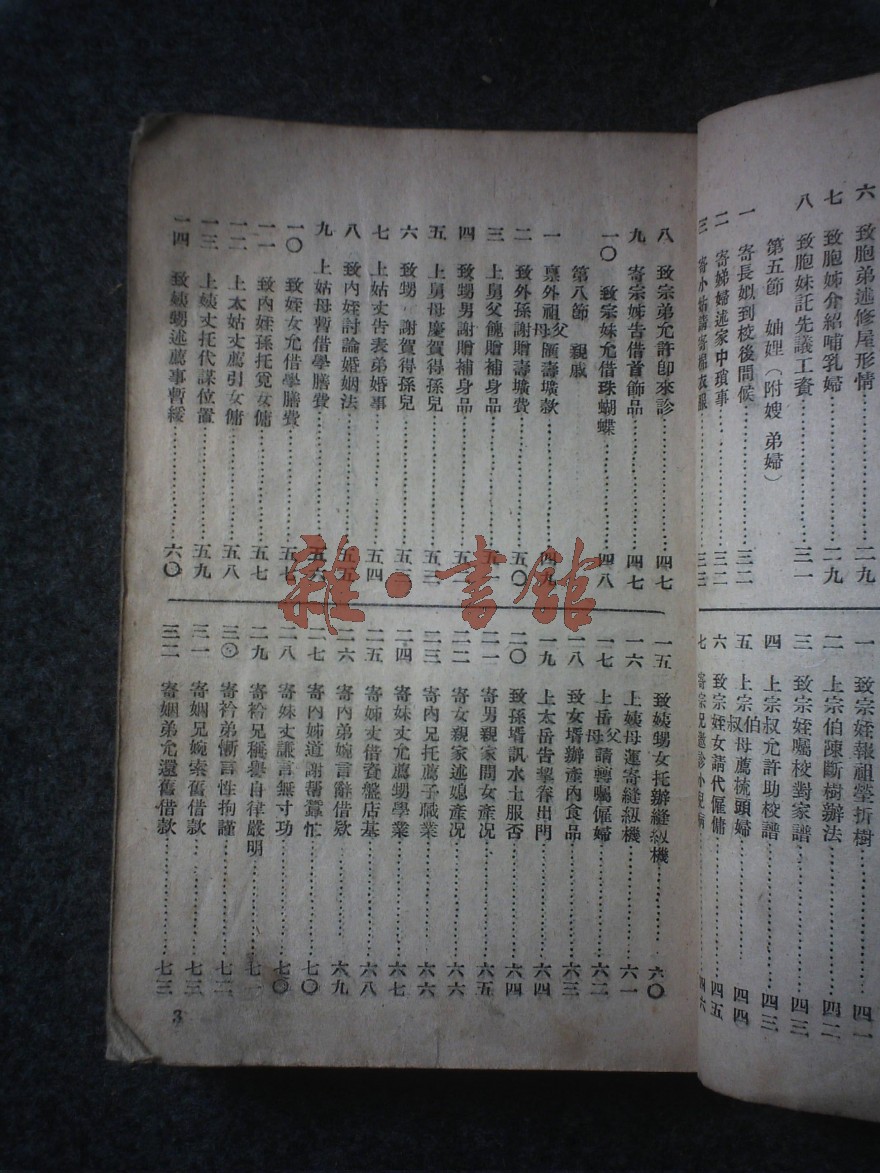 六 致胞弟述修屋形情 二九
七 致胞姊介紹哺乳婦 二九
八 致胞妹託先議工資 三一
第五節 妯娌（附嫂 弟婦）
一 寄長姒到校後問候 三二
二 寄娣婦述家中瑣事 三二
三 寄小姑 寄棉衣服 三三
一 致宗姪報祖塋折樹 四一
二 上宗伯陳斷樹辦法 四二
三 致宗姪囑校對家譜 四三
四 上宗叔允許助校譜 四三
五 上宗伯叔母薦梳頭婦 四四
六 致宗姪女請代僱傭 四五
七 寄宗兄邀診小兒病 四六
八 致宗弟允許卽來診 四七
九 寄宗姊告借首飾品 四七
一〇 致宗妹允借珠蝴蝶 四八
第八節 親戚
一 稟外祖父母匯壽壙款 四九
二 致外孫謝贈壽壙費 五〇
三 上舅父餽贈補身品 五一
四 致甥男謝贈補身品 五一
五 上舅母慶賀得孫兒 五三
六 致甥 謝賀得孫兒 五三
七 上姑丈告表弟婚事 五四
八 致內姪討論婚姻法 五五
九 上姑母暫借學膳費 五六
一〇 致姪女允借學膳費 五七
一一 致內姪孫托覓女傭 五七
一二 上太姑丈薦引女傭 五八
一三 上姨丈托代謀位置 五九
一四 致姨甥述薦事暫緩 六〇
一五 致姨甥女托辦縫級機 六〇
一六 上姨母運寄縫級機 六一
一七 上岳父母請轉囑僱婦 六二
一八 致女壻辦產內食品 六三
一九 上太岳告挈眷出門 六四
二〇 致孫壻訊水土服否 六四
二一 寄男親家問女產况 六五
二二 寄女親家述媳產况 六六
二三 寄內兄托薦子職業 六六
二四 寄妹丈允薦甥學業 六七
二五 寄姊丈借資盤店基 六八
二六 寄內弟婉言辭借欵 六九
二七 寄內姊道謝幫蠶忙 七〇
二八 寄妹丈謙言無寸功 七〇
二九 寄衿兄稱譽自律嚴明 七一
三〇 寄衿弟慚言性拘謹 七二
三一 寄姻兄婉索舊借欵 七三
三二 寄姻弟允還舊借欵 七三
3
雜·書館